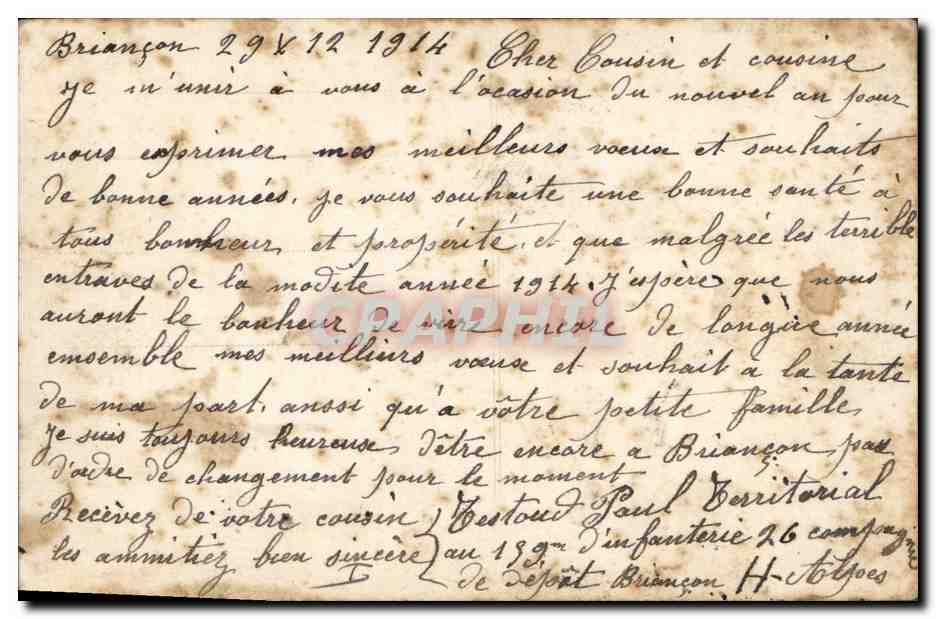 Briançon 29 12 1914 Cher Cousin et cousine
je m'unir à vous à l'ocasion du nouvel an pour
vous exprimer mes meilleurs vœux et souhaits
de bonne années, je vous souhaite une bonne santé à
tous bonheur et propérité, et que malgrée les terrible
entraves de la modite année 1914. J'espère que nous
auront le bonheur de vivre encore de longue année
emsemble mes meilliurs vœux et souhait a la tante
de ma part, aussi qu'a vôtre petite famille,
je suis toujours heureuse d'être encore a Briançon pas
d'ordre de changement pour le moment
Recevez de votre cousin Testoud Paul Territorial
les ammitiez bien sincère au 159me d'infanterie 26 compagnie
de dépôt Briançon H-Alpes
GRAPHIL